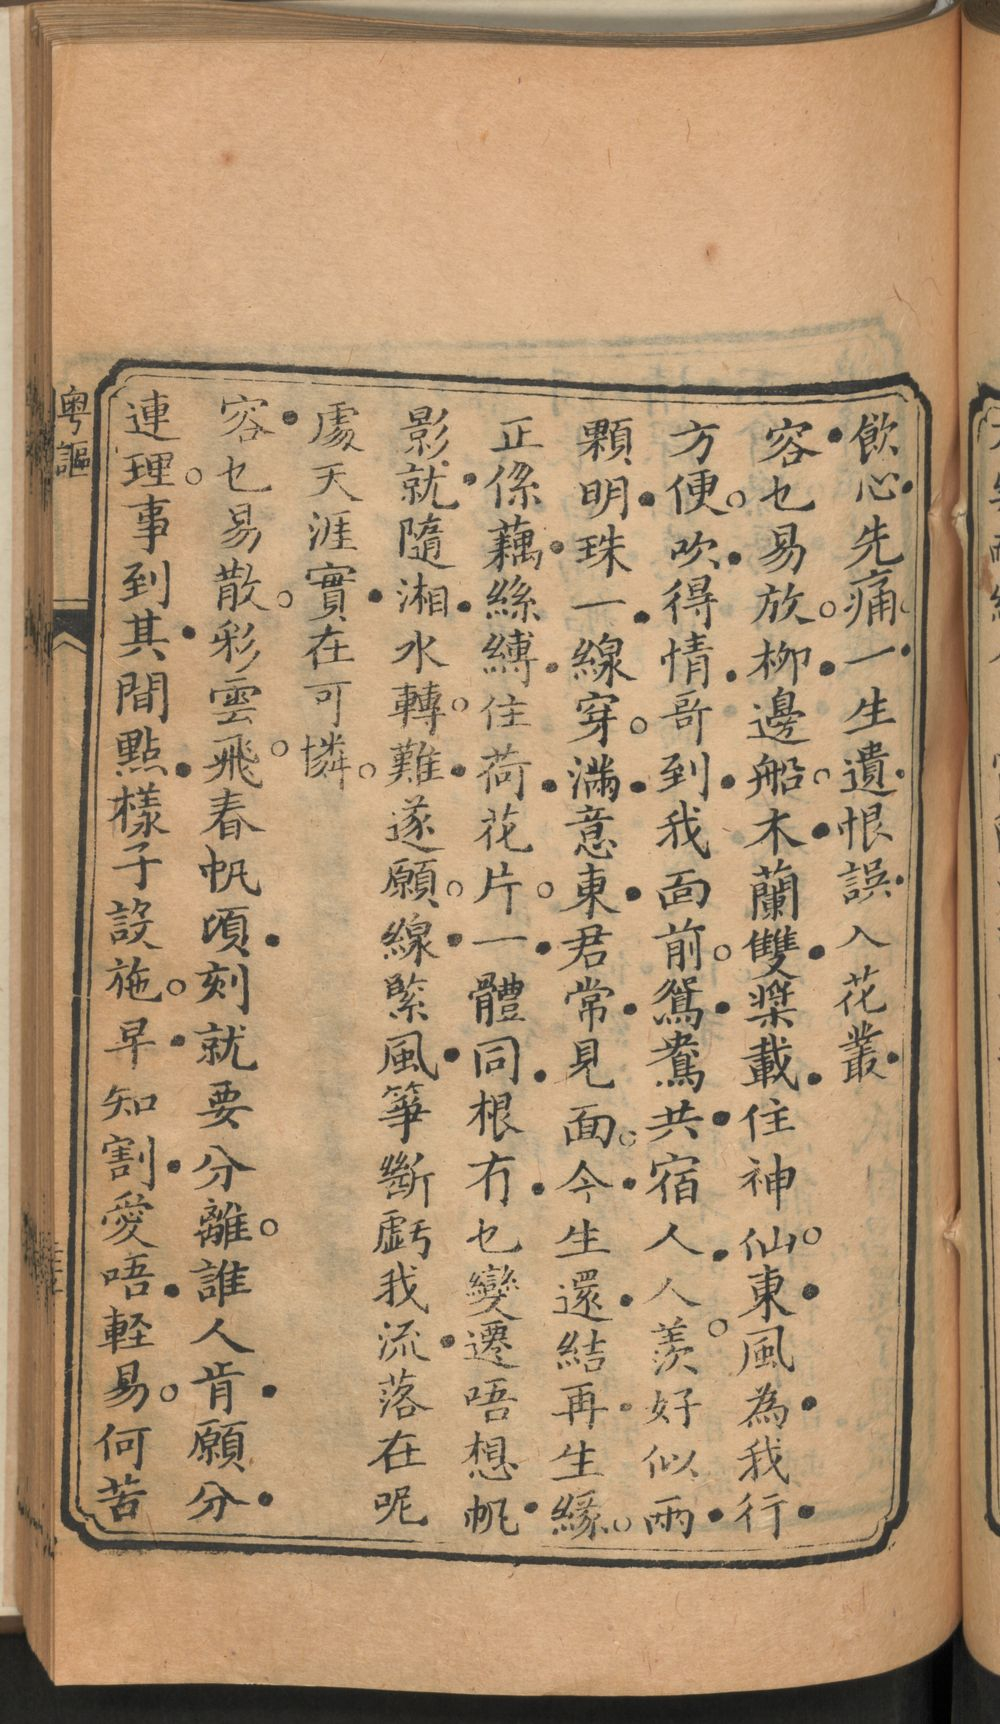 飲心先痛一生遺恨誤入花叢
容乜易放柳邊船木蘭雙槳載住神仙東風為我行
方便吹得情哥到我面前鴛鴦共宿人人羨好似兩
顆明珠一線穿滿意東君常見面今生還結再生緣
正係藕絲縛住荷花片一體同根冇乜變遷唔想帆
影就隨湘水轉難遂願線緊風箏斷虧我流落在呢
處天涯實在可憐
容乜易散彩雲飛春帆頃刻就要分離誰人肯願分
連理事到其間點樣子設施早知割愛唔軽易何苦
粵謳